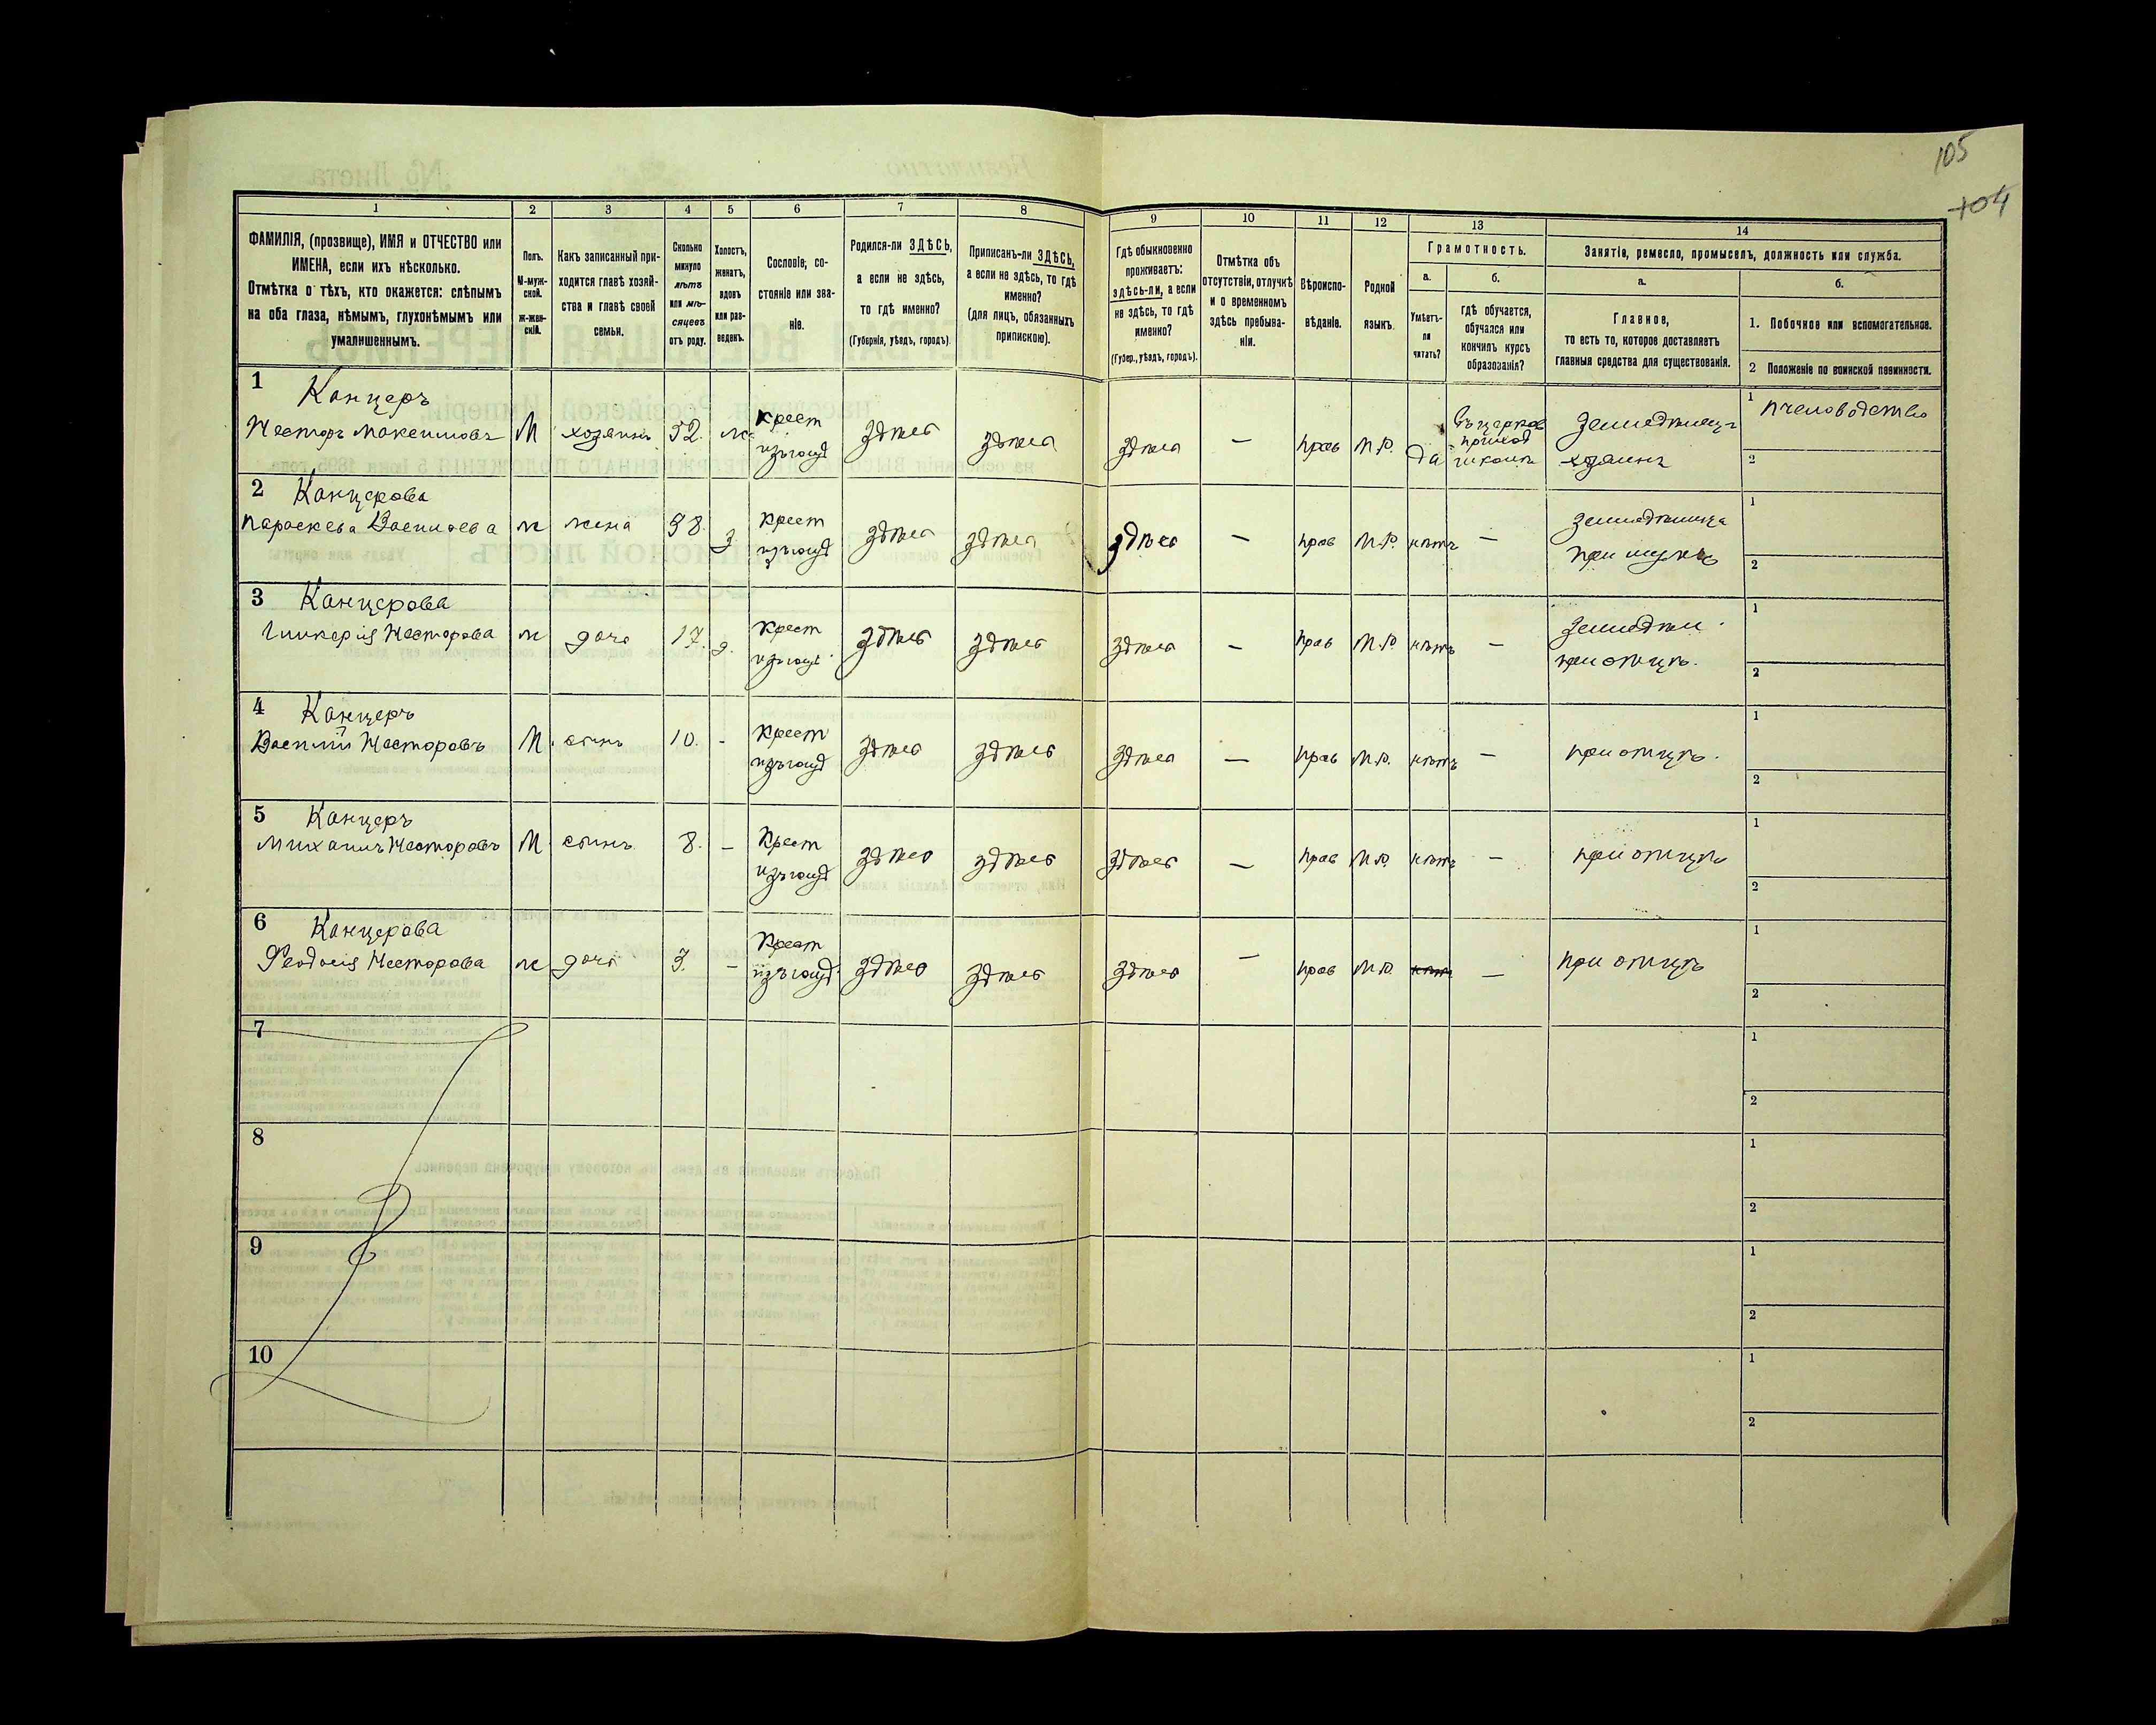 105
104
1
2
3
4
5
6
7
8
9
10
11
12
13
14
ФАМИЛІЯ, (прозвище), ИМЯ и ОТЧЕСТВО или
ИМЕНА, если ихъ нѣсколько.
Отмѣтка о тѣхъ, кто окажется: слѣпымъ
на оба глаза, нѣмымъ, глухонѣмымъ или
умалишеннымъ.
Полъ.
М-муж-
ской.
Ж-жен-
скій.
Какъ записанный при-
ходится главѣ хозяй-
ства и главѣ своей
семьи.
Сколько
минуло
лѣтъ
или мѣ-
сяцевъ
отъ роду.
Холостъ,
женатъ,
вдовъ
или раз-
веденъ.
Сословіе, со-
стояніе или зва-
ніе.
Родился-ли ЗДѢСЬ,
а если не здѣсь,
то гдѣ именно?
(Губернія, уѣздъ, городъ).
Приписанъ-ли ЗДѢСЬ,
а если не здѣсь, то гдѣ
именно?
(для лицъ, обязанныхъ
припискою).
Гдѣ обыкновенно
проживаетъ:
здѣсь-ли, а если
не здѣсь, то гдѣ
именно?
(Губер., уѣздъ, городъ).
Отмѣтка объ
отсутствіи, отлучкѣ
и о временномъ
здѣсь пребыва-
ніи.
Вѣроиспо-
вѣданіе.
Родной
языкъ.
Грамотность.
а.
б.
Умѣетъ-
ли
читать?
гдѣ обучается,
обучался или
кончилъ курсъ
образованія?
Занятіе, ремесло, промыселъ, должность или служба.
а.
б.
Главное,
то есть то, которое доставляетъ
главныя средства для существованія.
1. Побочное или вспомогательное.
2 Положеніе по воинской повинности.
1 Канцеръ
Несторъ Максимовъ М хозяинъ 52. ж. крест изъ госуд здѣсь здѣсь здѣсь — прав М.Р. да въ церков приход школѣ Земледѣлецъ хозяинъ 1 пчеловодство
2
2 Канцерова
Параскева Васильева ж жена 38. з. крест изъ госуд здѣсь здѣсь здѣсь — прав М.Р. нѣтъ — земледѣлица при мужѣ 1
2
3 Канцерова
Гликерія Несторова ж дочь 17. д. крест изъ госуд здѣсь здѣсь здѣсь — прав М.Р. нѣтъ — земледѣл. при отцѣ. 1
2
4 Канцеръ
Василій Несторовъ М. сынъ 10. - крест изъ госуд здѣсь здѣсь здѣсь — прав М.Р. нѣтъ — при отцѣ. 1
2
5 Канцеръ
Михаилъ Несторовъ М сынъ 8. — крест изъ госуд здѣсь здѣсь здѣсь — прав М.Р. нѣтъ — при отцѣ 1
2
6 Канцерова
Феодосія Несторова ж дочь 3. — крест изъ госуд здѣсь здѣсь здѣсь — прав М.Р. нѣтъ — при отцѣ 1
2
7 1
2
8 1
2
9 1
2
10 1
2